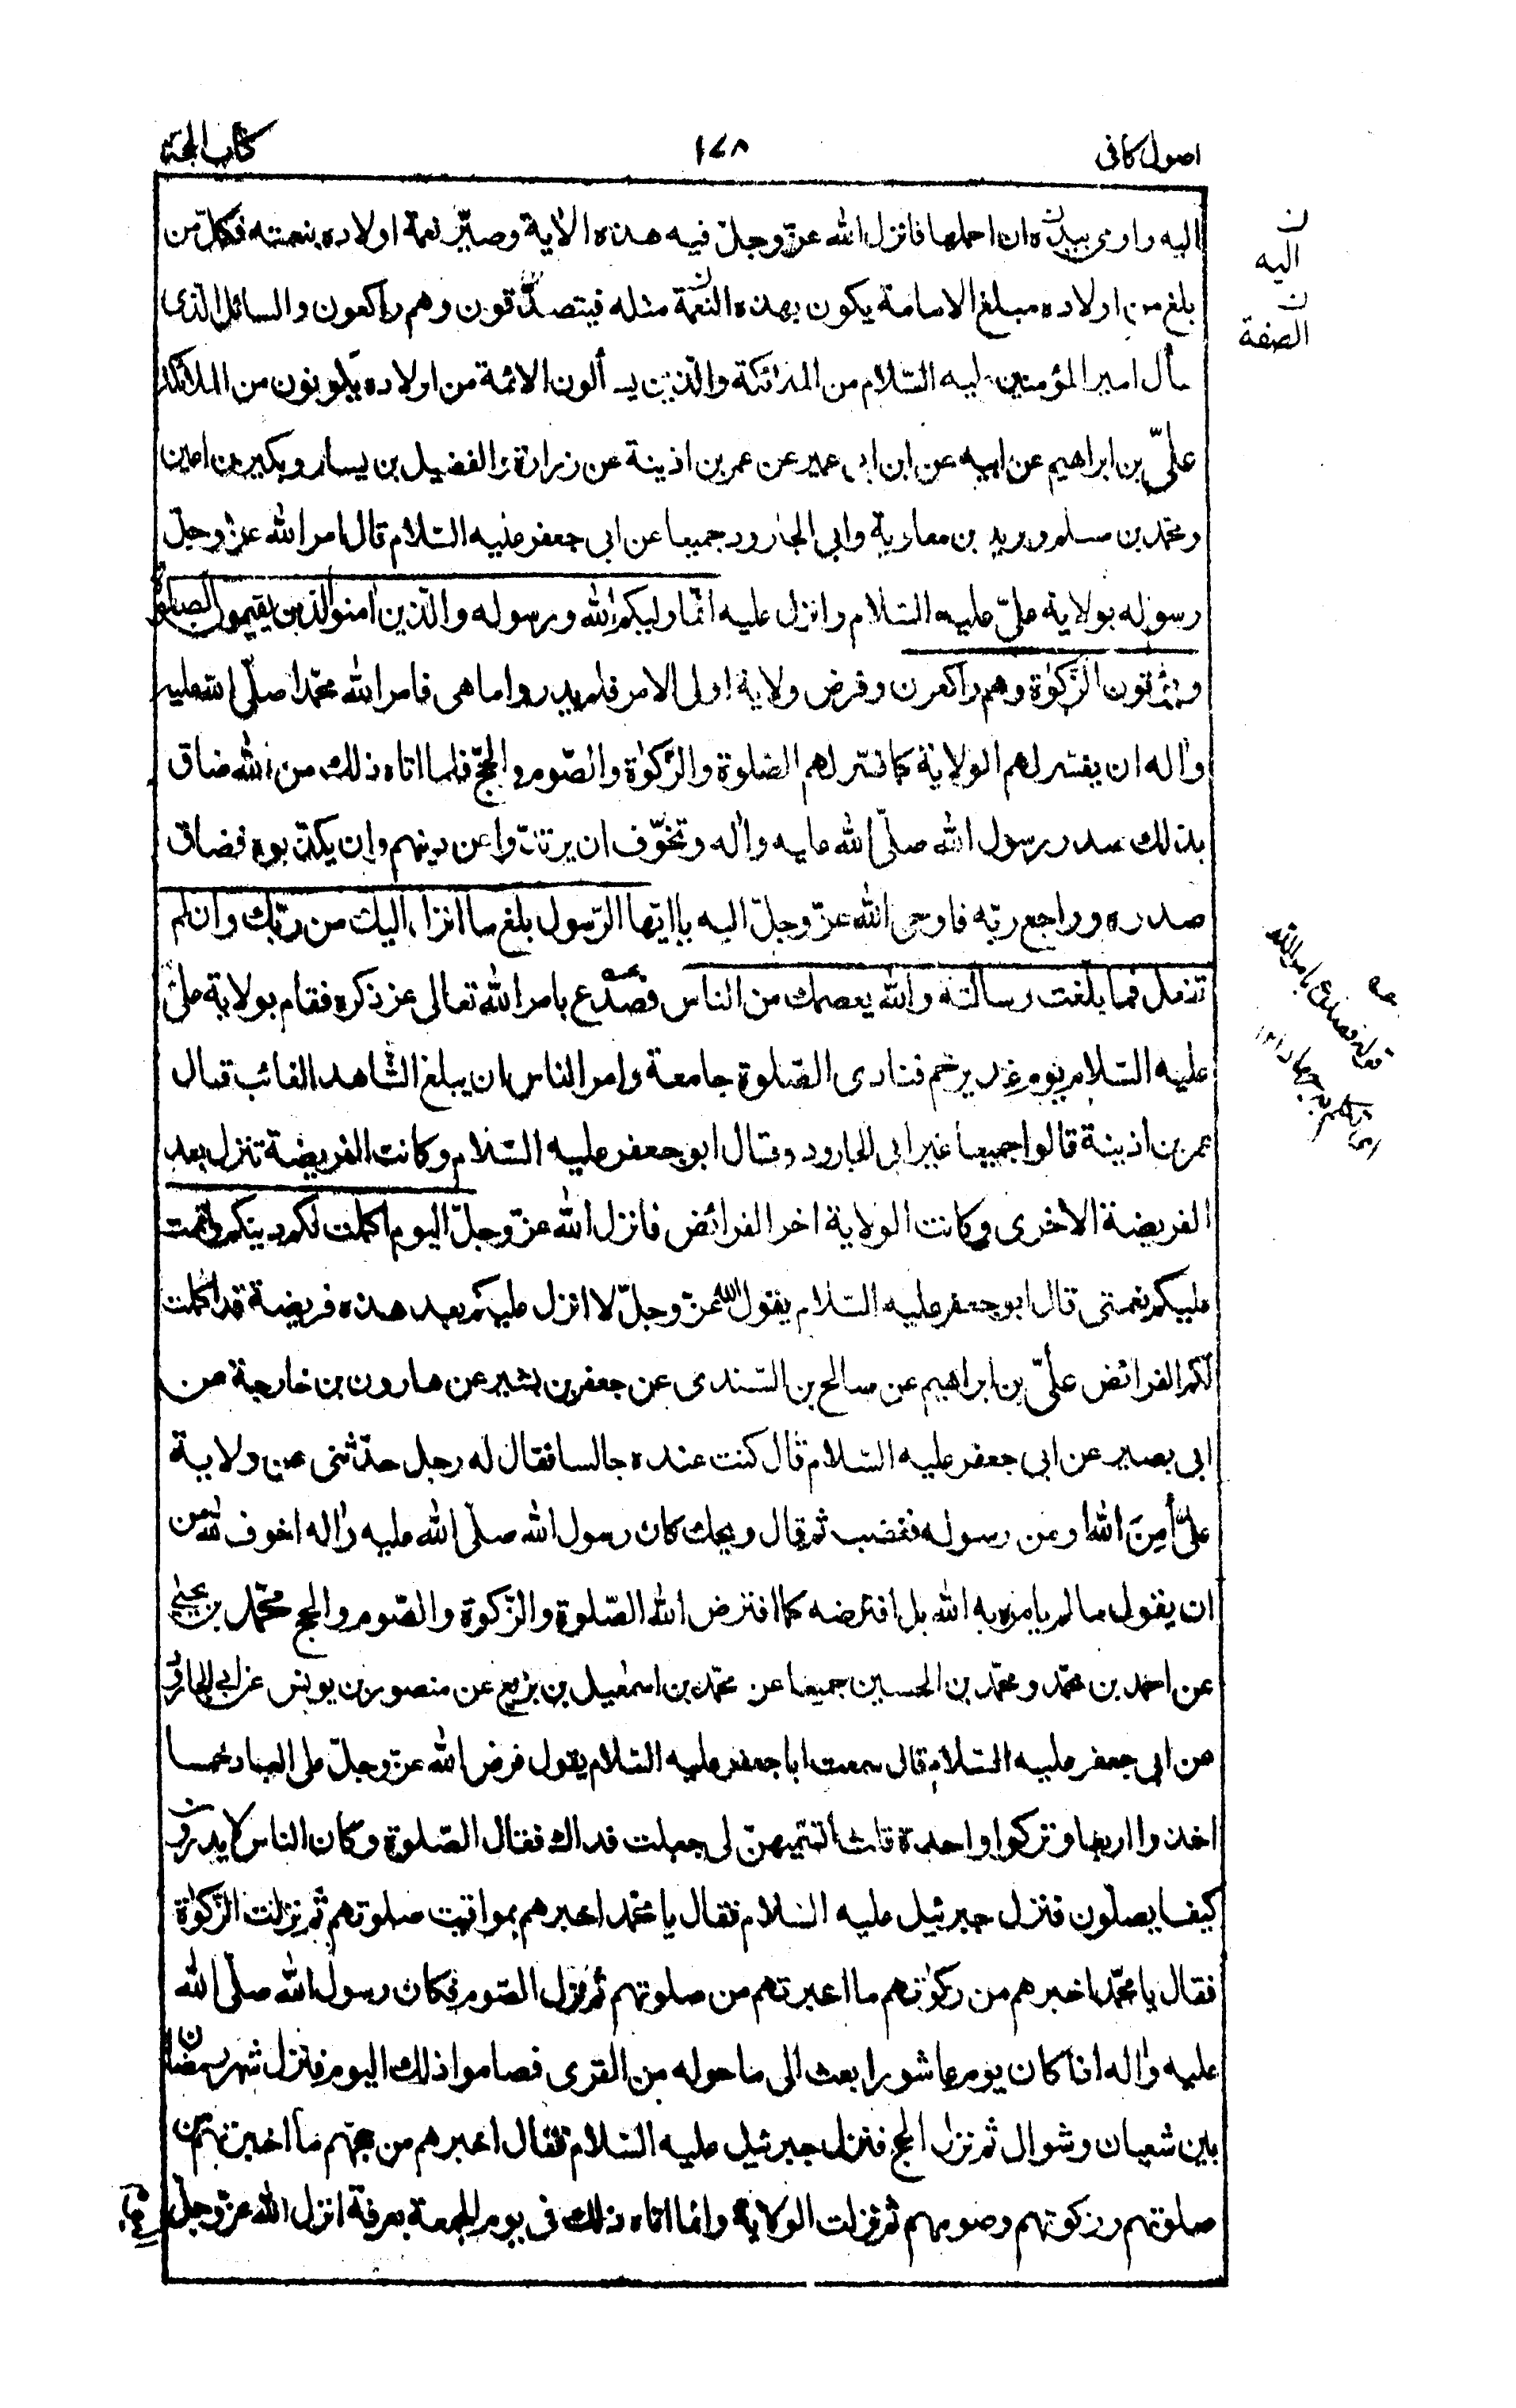 اصول كافى
١٧٨
كتاب الحجة
اليه واومى بيده ان احملها فانزل الله عزّ وجلّ فيه هذه الاٰية وصيّر نعمة اولاده بنعمته فكلّ من
بلغ من اولاده مبلغ الامامة يكون بهذه النعمة مثله فيتصدّقون وهم راكعون والسائل الذى
سأل امير المؤمنين عليه السّلام من الملائكة والّذين يسألون الائمة من اولاده يكونون من الملائكة
علىّ بن ابراهيم عن ابيه عن ابن ابى عمير عن عمر بن اذينة عن زرارة والفضيل بن يسار وبكير بن اعين
ومحمّد بن مسلم وبريد بن معاوية وابى الجارود جميعا عن ابى جعفر عليه السّلام قال امر الله عزّ وجلّ
رسوله بولاية علىّ عليه السّلام وانزل عليه انّما وليكم الله ورسوله والّذين اٰمنوا الّذين يقيمون الصلوة
ويؤتون الزّكوٰة وهم راكعون وفرض ولاية اولى الامر فلم يدروا ما هى فامر الله محمّدا صلّى الله عليه
واٰله ان يفسّر لهم الولاية كما فسّر لهم الصّلوة والزّكوٰة والصّوم والحجّ فلما اتاه ذلك من الله ضاق
بذلك صدر رسول الله صلّى الله عليه واٰله وتخوّف ان يرتدّوا عن دينهم وان يكذّبوه فضاق
صدره وراجع ربّه فاوحى الله عزّ وجلّ اليه يا ايّها الرّسول بلغ ما انزل اليك من ربّك وان لم
تفعل فما بلّغت رسالته والله يعصمك من الناس فصدع بامر الله تعالى عز ذكره فقام بولاية علىّ
عليه السّلام يوم غدير خم فنادى الصّلوة جامعة وامر الناس ان يبلغ الشّاهد الغائب قال
عمر بن اذينة قالوا جميعا غير ابى الجارود وقال ابو جعفر عليه السّلام وكانت الفريضة تنزل بعد
الفريضة الاخرى وكانت الولاية اخر الفرائض فانزل الله عزّ وجلّ اليوم اكملت لكم دينكم واتممت
عليكم نعمتى قال ابو جعفر عليه السّلام يقول الله عزّ وجلّ لا انزل عليكم بعد هذه فريضة قد اكملت
لكم الفرائض علىّ بن ابراهيم عن صالح بن السّندى عن جعفر بن بشير عن هارون بن خارجة عن
ابى بصير عن ابى جعفر عليه السّلام قال كنت عنده جالسا فقال له رجل حدّثنى عن ولاية
علىّ أمِنَ الله او من رسوله فغضب ثم قال ويحك كان رسول الله صلّى الله عليه واٰله اخوف لله من
ان يقول ما لم يامره به الله بل افترضه كما افترض الله الصّلوة والزّكوة والصّوم والحج محمّد بن يحيى
عن احمد بن محمّد ومحمّد بن الحسين جميعا عن محمّد بن اسمٰعيل بن بزيع عن منصور بن يونس عن ابى الجارود
عن ابى جعفر عليه السّلام قال سمعت ابا جعفر عليه السّلام يقول فرض الله عزّ وجلّ على العباد خمسا
اخذوا اربعا وتركوا واحدة قلت أتسمّيهنّ لى جعلت فداك فقال الصّلوة وكان الناس لا يدرون
كيف يصلّون فنزل جبرئيل عليه السّلام فقال يا محمّد اخبرهم بمواقيت صلوتهم ثم نزلت الزّكوٰة
فقال يا محمّد اخبرهم من زكوٰتهم ما اخبرتهم من صلوتهم ثم نزل الصّوم فكان رسول الله صلّى الله
عليه واٰله اذا كان يوم عاشورا بعث الى ما حوله من القرى فصاموا ذلك اليوم فنزل شهر رمضان
بين شعبان وشوال ثم نزل الحج فنزل جبرئيل عليه السّلام فقال اخبرهم من حجهم ما اخبرتهم من
صلوتهم وزكوتهم وصومهم ثم نزلت الولاية وانما اتاه ذلك فى يوم الجمعة بعرفة انزل الله عزّ وجلّ
ن
اليه
ن
الصفة
قوله فصدع بامر الله
اى تكلم به جهارا